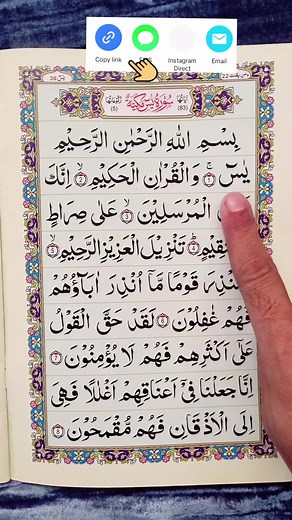 Copy link
Instagram
Direct
Email
سُوْرَةُ يٰسٓ مَكِّيَّةٌ
اٰيَاتُهَا
(83)
رُكُوْعَاتُهَا
(5)
بِسْمِ اللهِ الرَّحْمٰنِ الرَّحِيْمِ
يٰسٓ ۚ ﴿1﴾ وَالْقُرْاٰنِ الْحَكِيْمِ ۙ ﴿2﴾ اِنَّكَ
الْمُرْسَلِيْنَ ۙ ﴿3﴾ عَلٰى صِرَاطٍ
﴿4﴾ تَنْزِيْلَ الْعَزِيْزِ الرَّحِيْمِ ۙ ﴿5﴾
قَوْمًا مَّاۤ اُنْذِرَ اٰبَآؤُهُمْ
فَهُمْ غٰفِلُوْنَ ﴿6﴾ لَقَدْ حَقَّ الْقَوْلُ
عَلٰۤى اَكْثَرِهِمْ فَهُمْ لَا يُؤْمِنُوْنَ ﴿7﴾
اِنَّا جَعَلْنَا فِيْۤ اَعْنَاقِهِمْ اَغْلٰلًا فَهِيَ
اِلَى الْاَذْقَانِ فَهُمْ مُّقْمَحُوْنَ ﴿8﴾